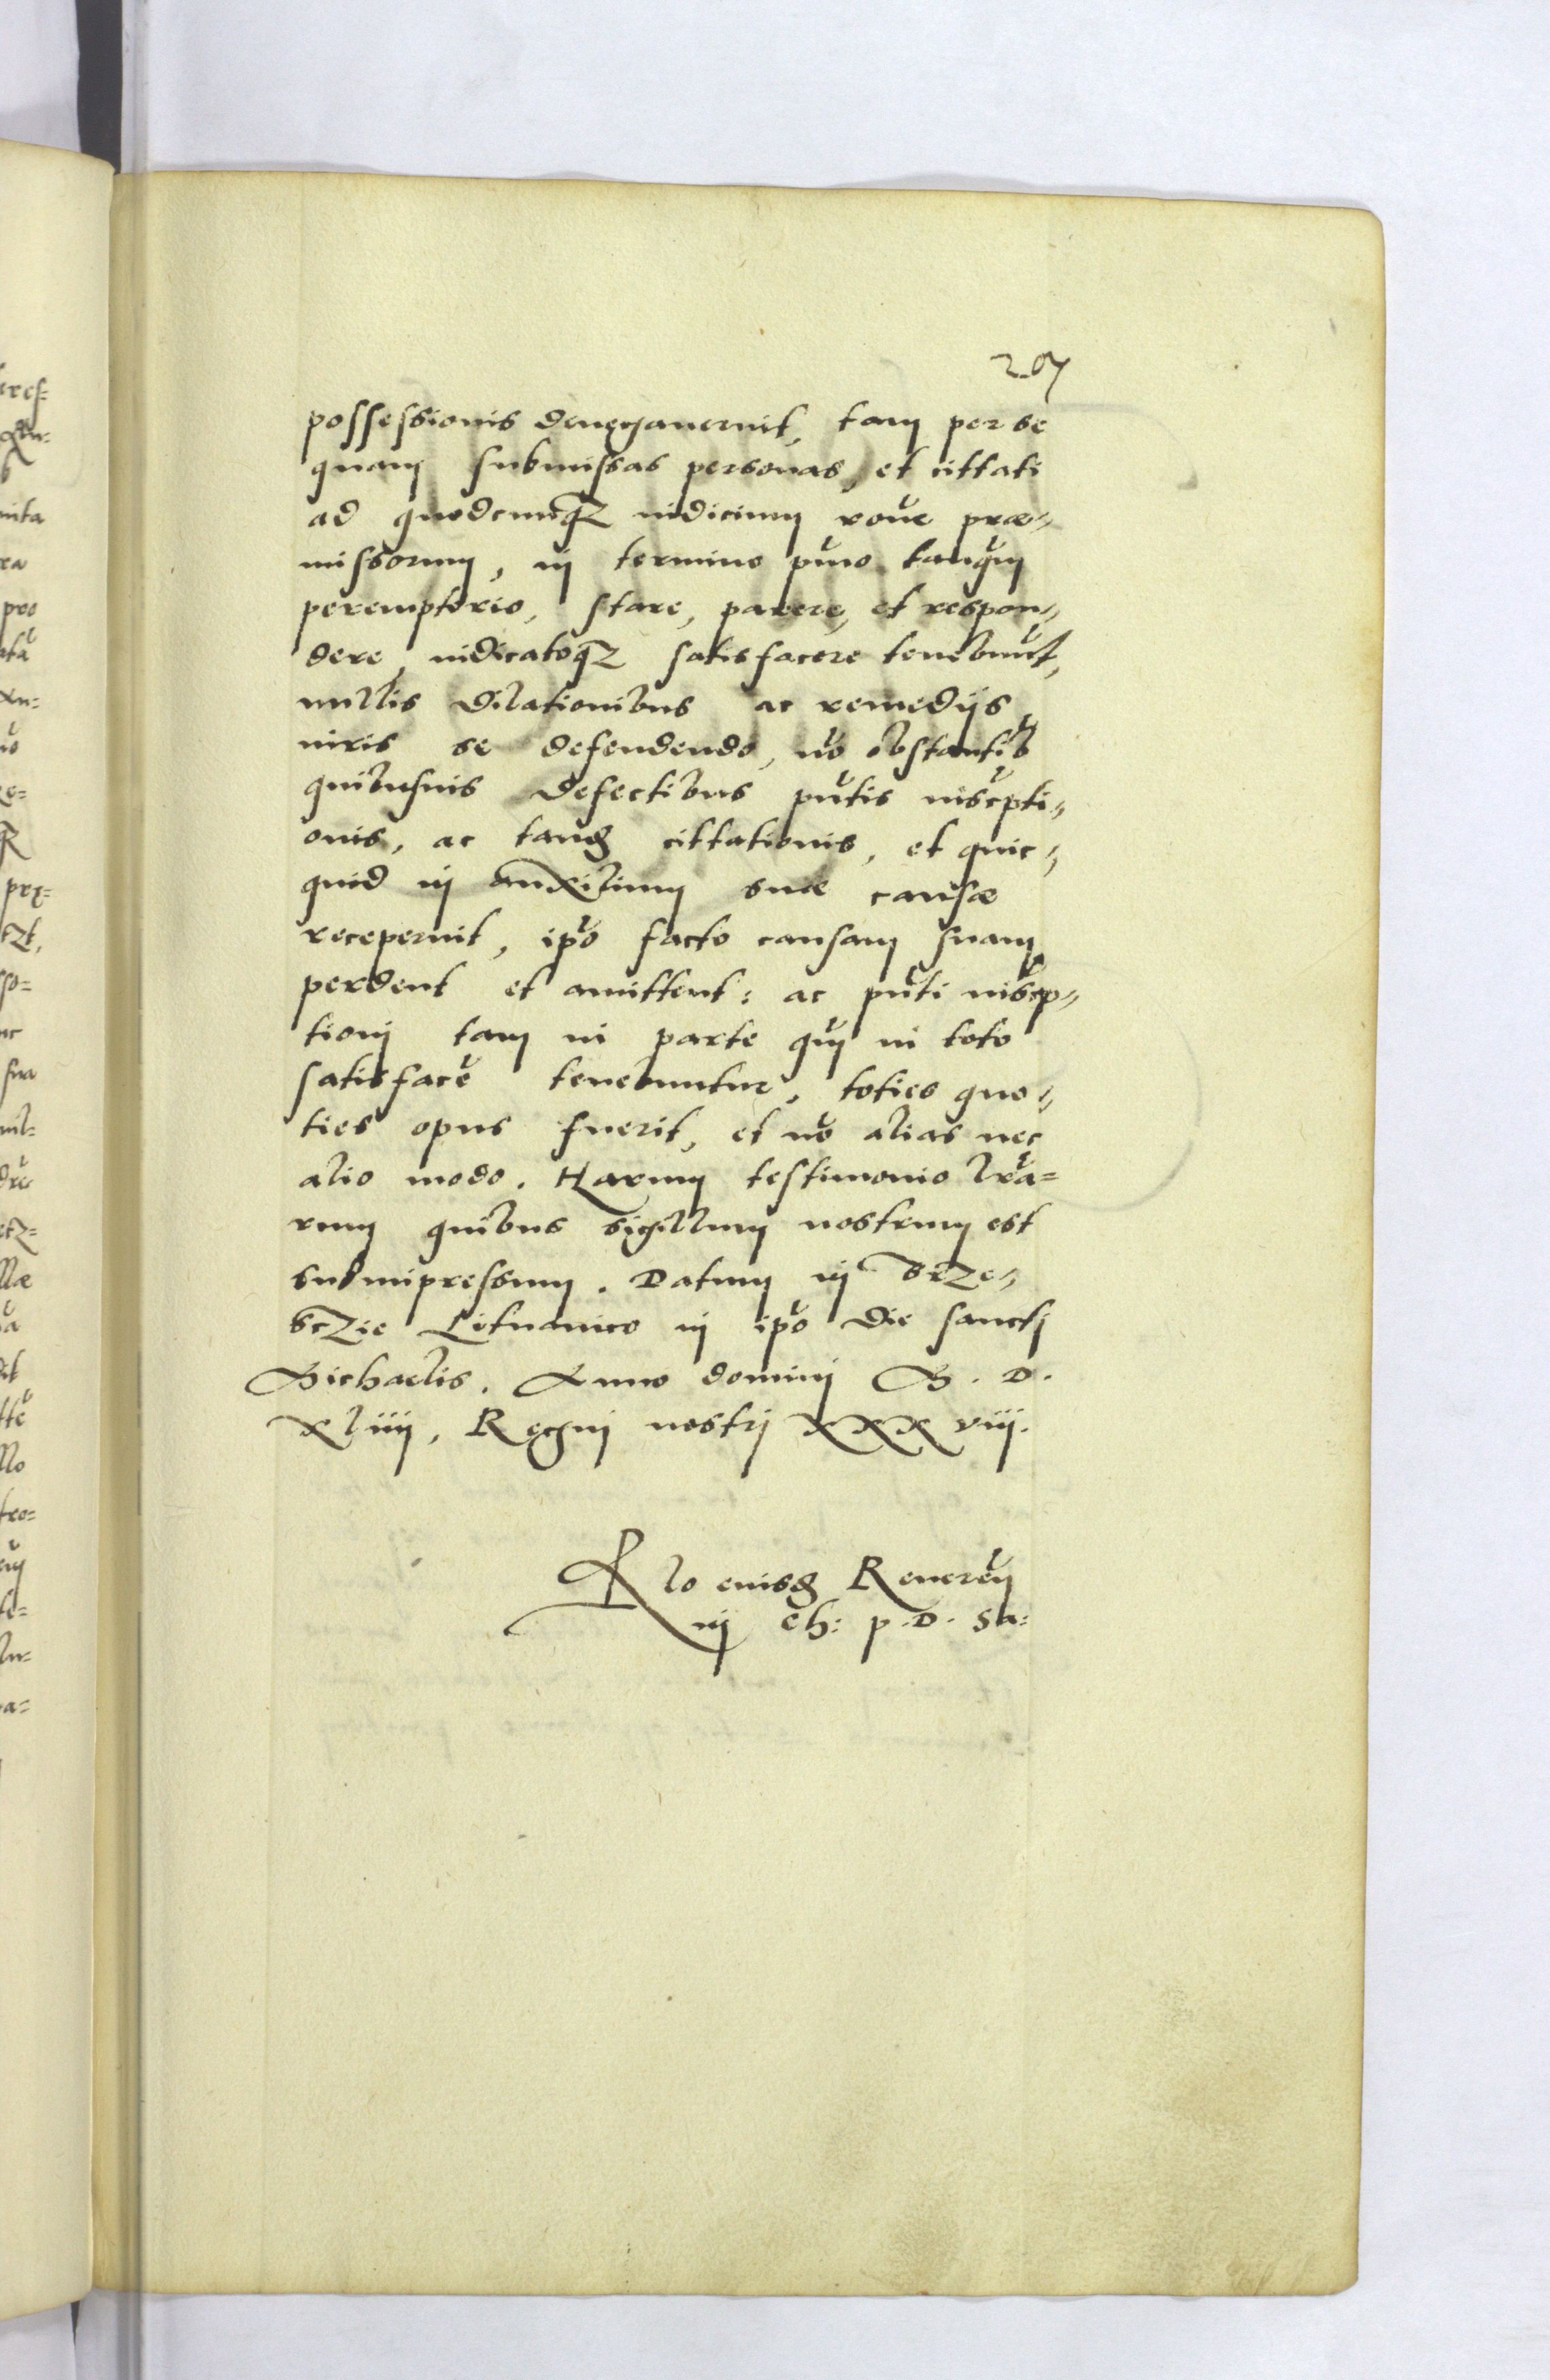 207
possessionis denegaverint, tam per se
quam submissas personas, et cittati
ad quodcunqz iudicium roñe præ-
missorum, in termino pimo tanqum
peremptorio, stare, parere, et respon-
dere, iudicatoqz satisfacere tenebunt,
nullis dilationibus ac remedijs
iuris se defendendo, no obstantib
quibusuis defectibus pntis inscpti-
onis, ac tanq cittationis, et quic-
quid in auxilium suæ causæ
receperint, ipo facto causam suam
perdent et amittent: ac pnti inscp-
tioni tam in parte qum in toto
satisface tenebuntur, toties quo-
ties opus fuerit, et no alias nec
alio modo. Harum testimonio lra-
rum quibus sigillum nostrum est
subimpressum. Datum in Brze-
sczie Lituanico in ipo die sancti
Michaelis. Anno domini M. D.
xliiij, Regni nostri xxxviij.
Rlo eiusq Reueren
in Ch: p. D. Sa: